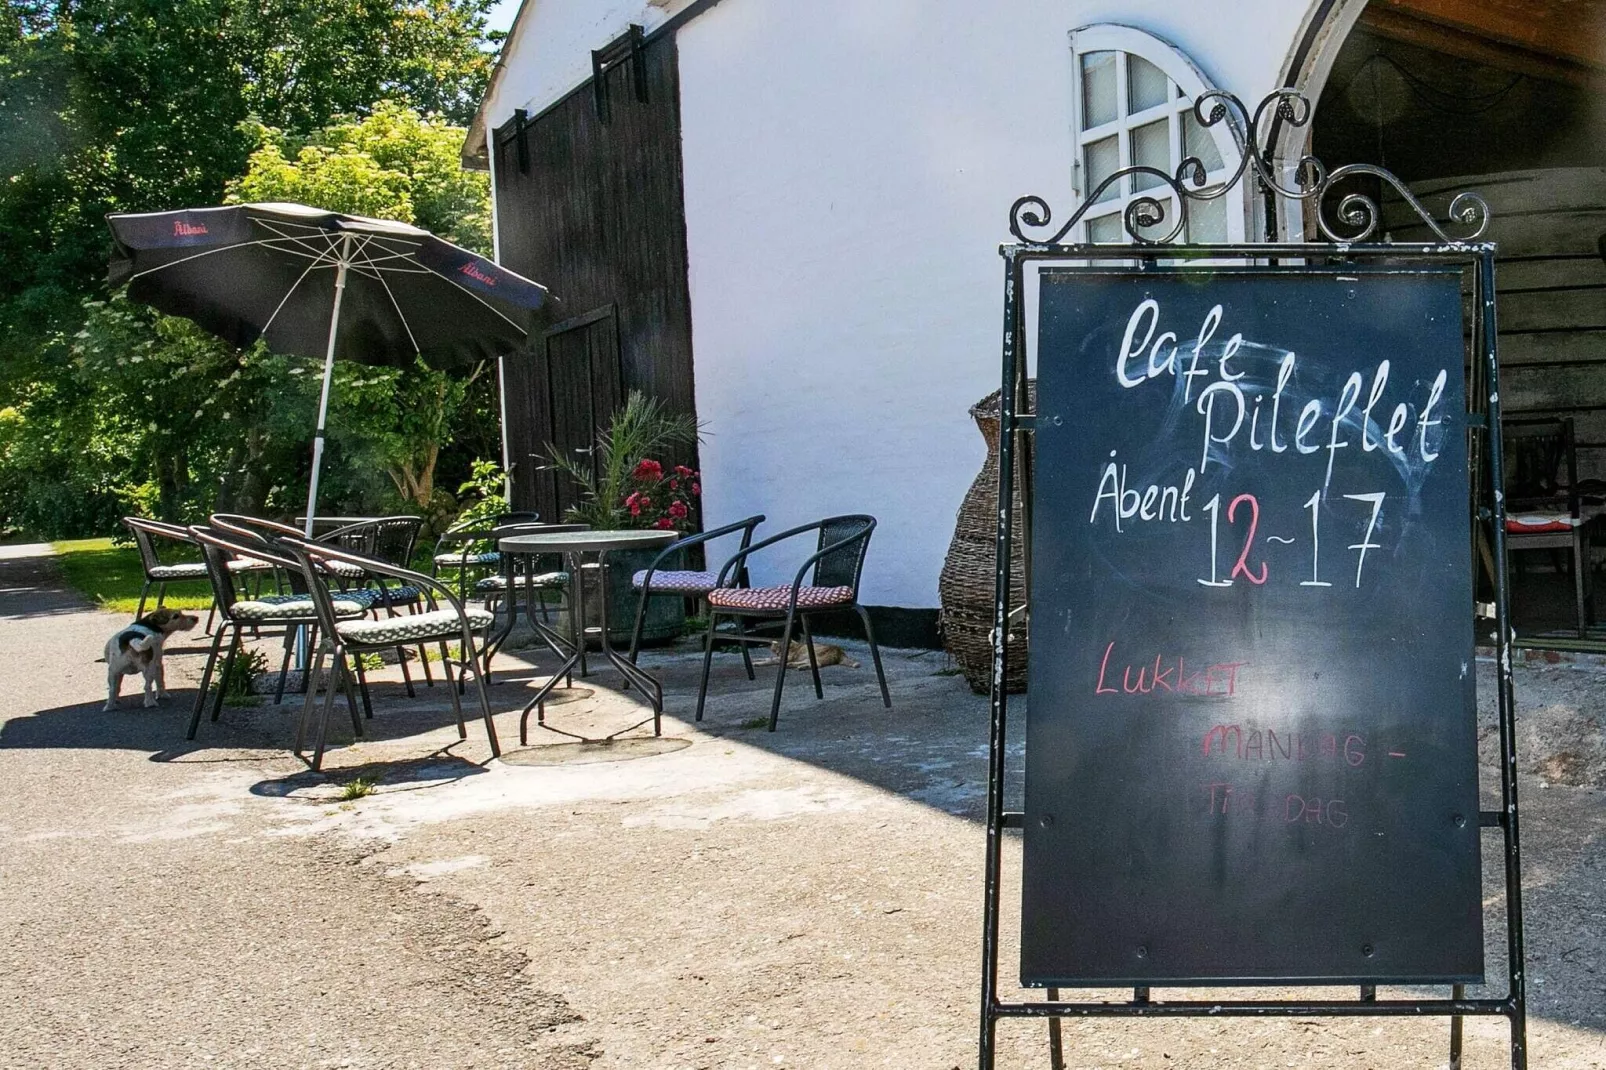 Albani
Albani
Cafe
Pileflet
Åbent 12~17
LUKKET
MANDAG -
TIRSDAG